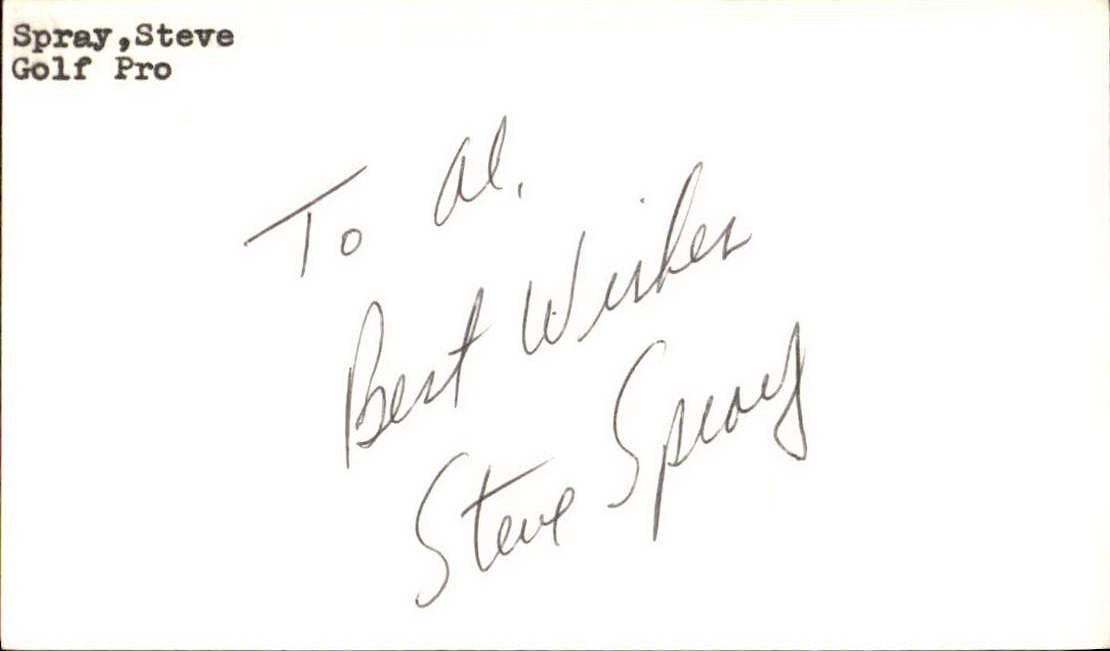 Spray,Steve
Golf Pro
To Al,
Best Wishes
Steve Spray